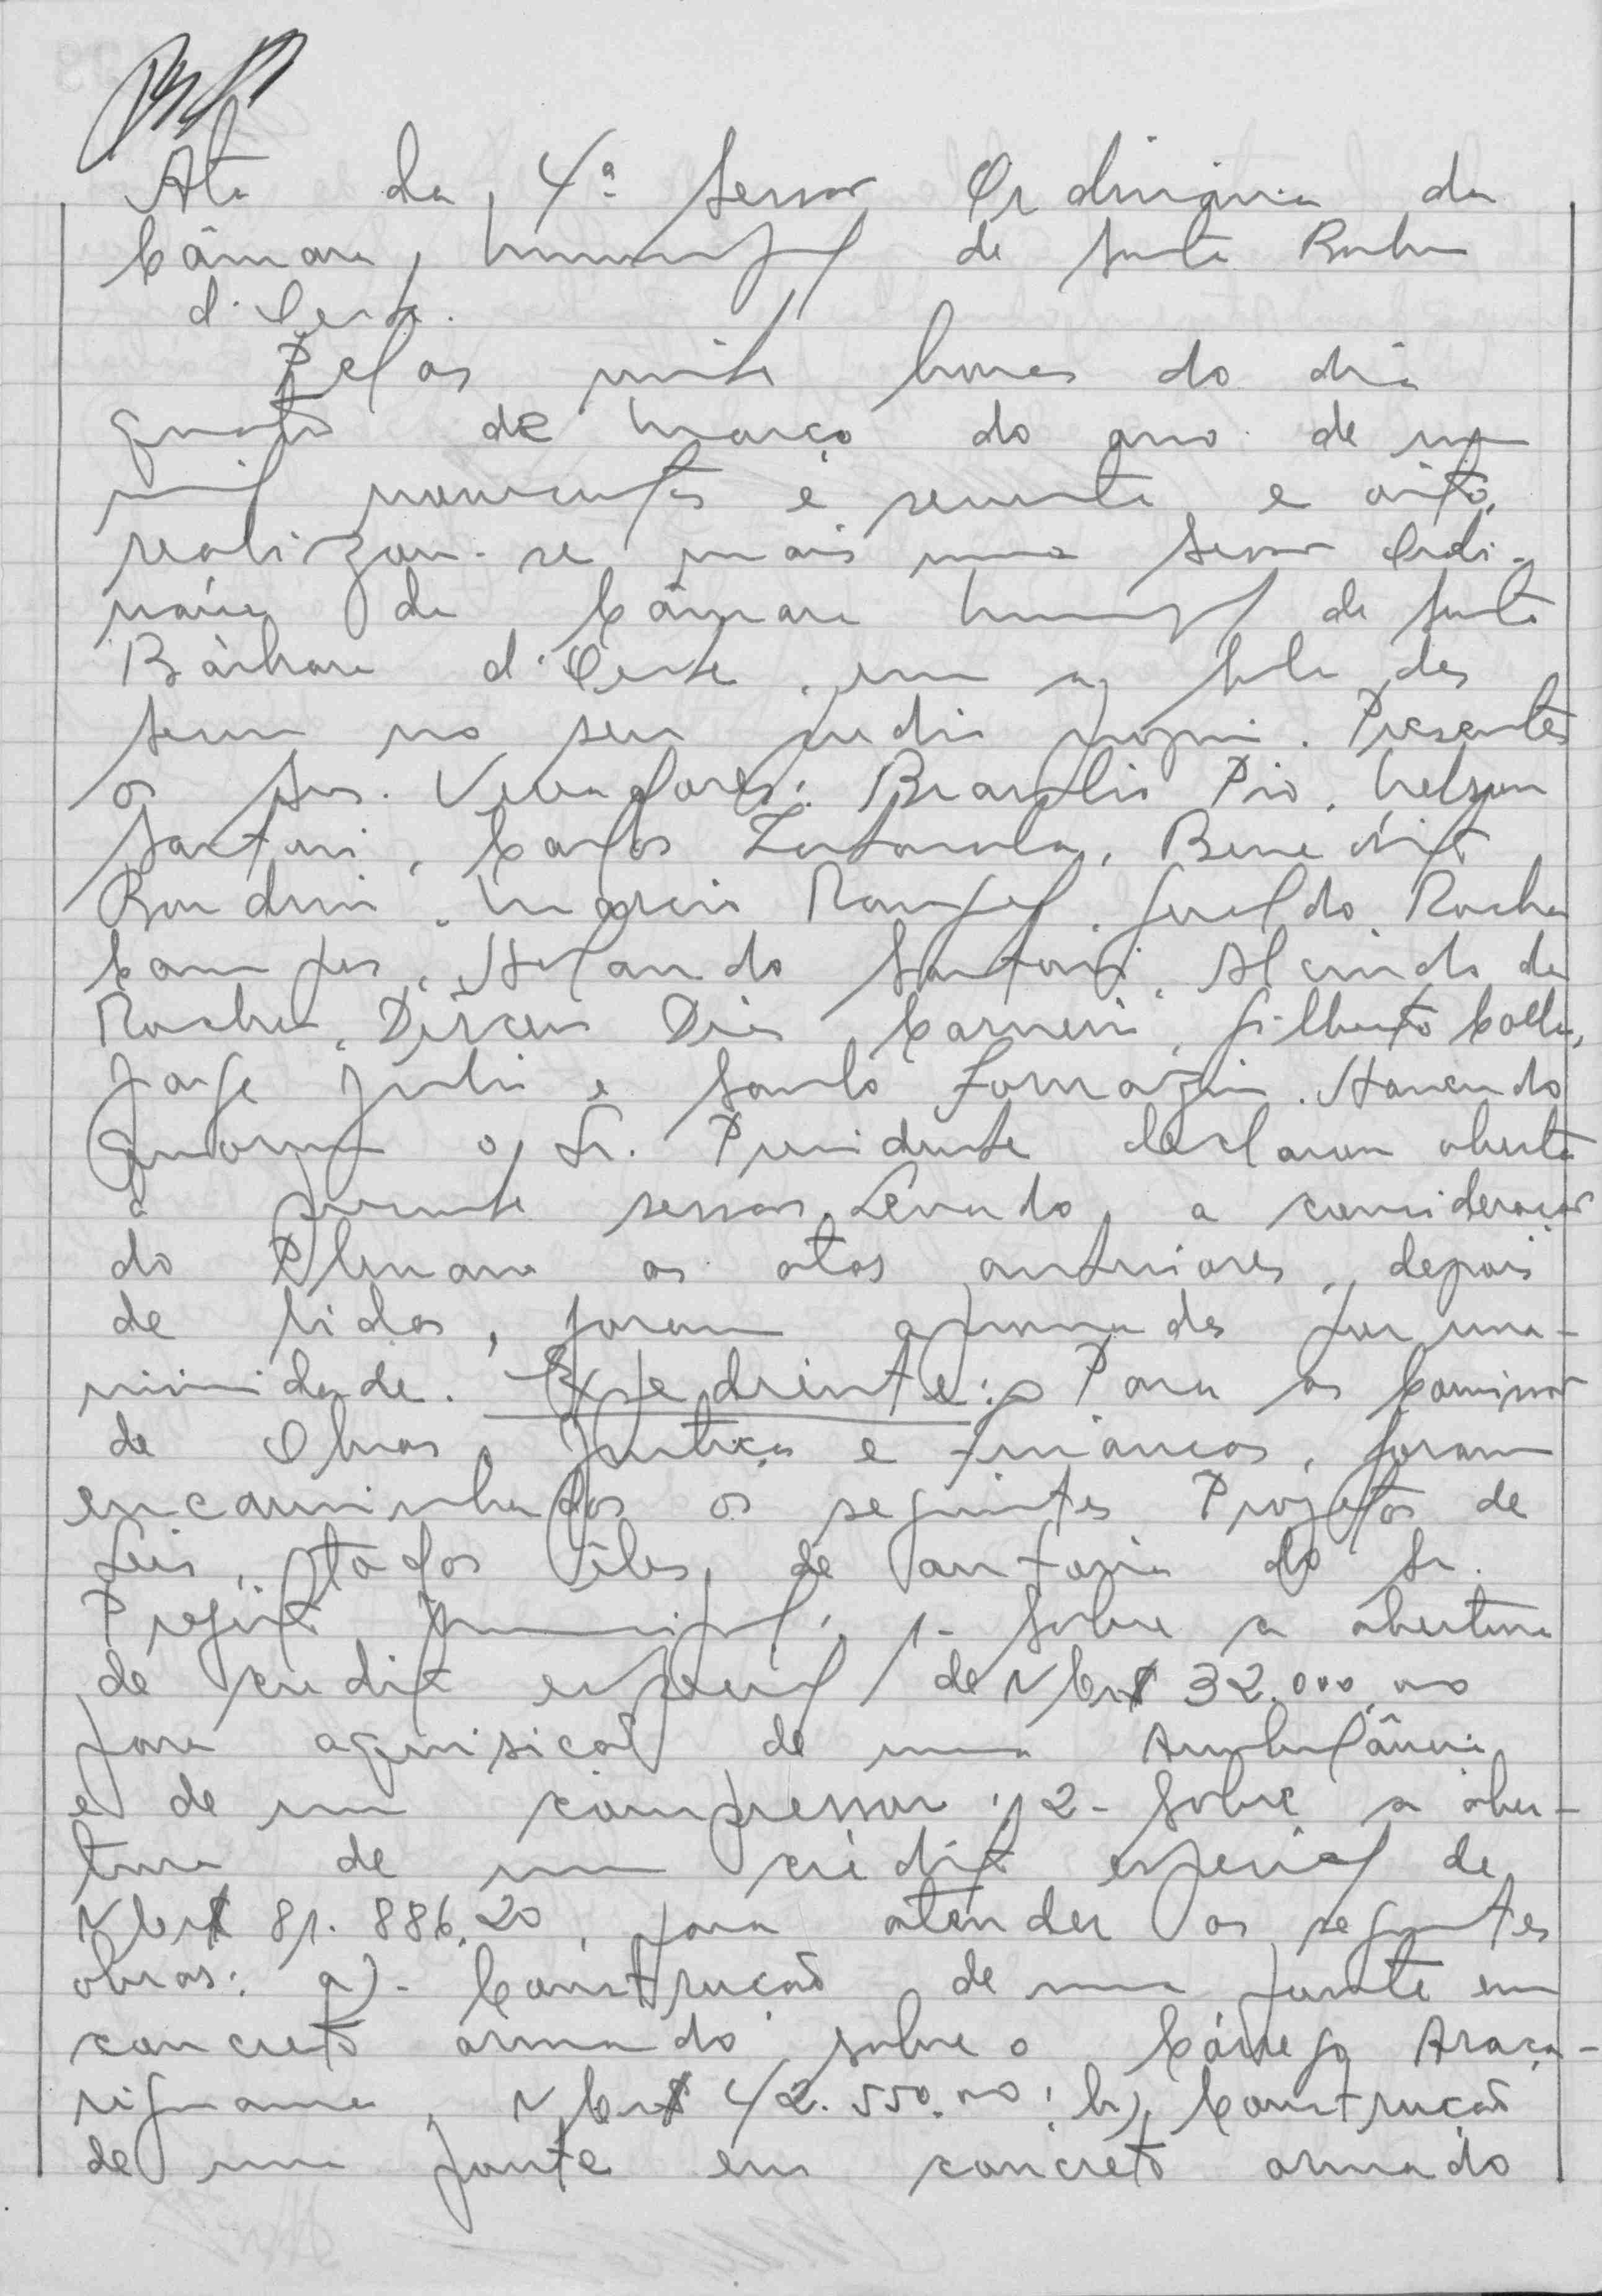 Ata da 4ª Sessão Ordinária da
Câmara Municipal de Santa Bárbara
d'Oeste.
Pelas vinte horas do dia
quatro de março do ano de um
mil novecentos e sessenta e oito,
realizou-se mais uma Sessão Ordi-
nária da Câmara Municipal de Santa
Bárbara d'Oeste, em a sala das
Sessões no seu prédio próprio. Presentes
os Srs. Vereadores: Brasilio Pio, Nelson
Santori, Carlos, Benedito
Bondini, Márcio Rangel, Geraldo Rocha
Campos, Holando Santori, Alcindo da
Rocha, Dirceu Dias Carneiro, Gilberto Colla,
Jorge Julio e Santo Fornazin. Havendo
Quorum o Sr. Presidente declarou aberta
a presente sessão. Levando a consideração
do Plenario as atas anteriores, depois
de lidas, foram aprovadas por una-
nimidade. Expediente: Para as Comissão
de Obras, Justiça e Finanças, foram
encaminhados os seguintes Projetos de
Leis, todos êles, de autoria do Sr.
Prefeito Municipal: 1- Sobre a abertura
de credito especial de NCr$ 32.000,00
para aquisicaõ de uma Ambulância
e de um compressor; 2- Sobre a aber-
tura de um crédito especial de
NCr$ 81.886,20, para atender as seguintes
obras: a)- Construcaõ de uma ponte em
concreto armado sobre o Córrego Araça-
riguama, NCr$ 42.550,00; b), Construcaõ
de uma ponte em concreto armado